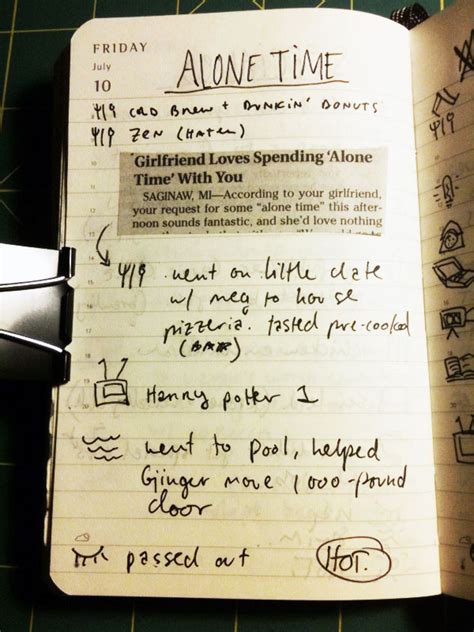 FRIDAY
July
10
ALONE TIME
COLD BREW + DUNKIN' DONUTS
ZEN (HATCH)
Girlfriend Loves Spending 'Alone
Time' With You
SAGINAW, MI—According to your girlfriend,
your request for some "alone time" this after-
noon sounds fantastic, and she'd love nothing
went on little date
w/ meg to house
pizzeria. tasted pre-cooked
Harry potter 1
went to pool, helped
Ginger move 1000-pound
door
passed out
HOT.